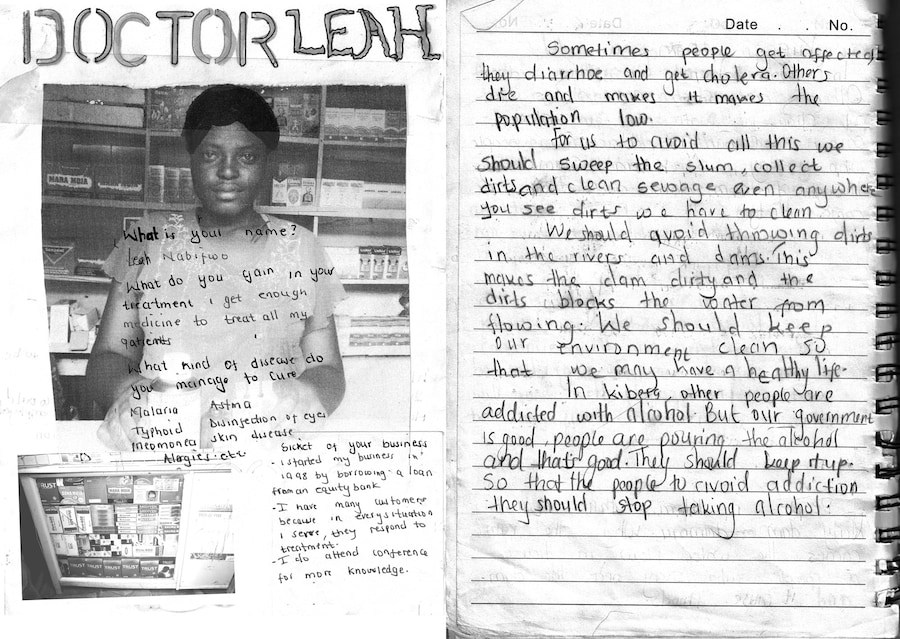 DOCTOR LEAH
MARA MOJA
What is your name?
Leah Nabifwo
What do you gain in your
treatment i get enough
medicine to treat all my
patients
What kind of disease do
you manage to cure
Malaria Astma
Typhoid Disinsection of eyes
Pneomonea skin disease
Alagies etc
Sicket of your business
- I started my business in
1998 by borrowing a loan
from an equity bank
- I have many customers
because in every situation
i serve, they respond to
treatment.
- I do attend conference
for more knowledge.
TRUST TRUST TRUST TRUST
Date . . No.
Sometimes people get affected
they diarrhoe and get cholera. Others
die and makes it makes the
population low.
For us to avoid all this we
should sweep the slum, collect
dirts and clean sewage even anywhere
you see dirts we have to clean
We should avoid throwing dirts
in the rivers and dams. This
makes the dam dirty and the
dirts blocks the water from
flowing. We should keep
our environment clean so
that we may have a healthy life.
In kibera, other people are
addicted with alcohol. But our government
is good, people are pouring the alcohol
and thats good. They should keep it up.
So that the people to avoid addiction
they should stop taking alcohol.